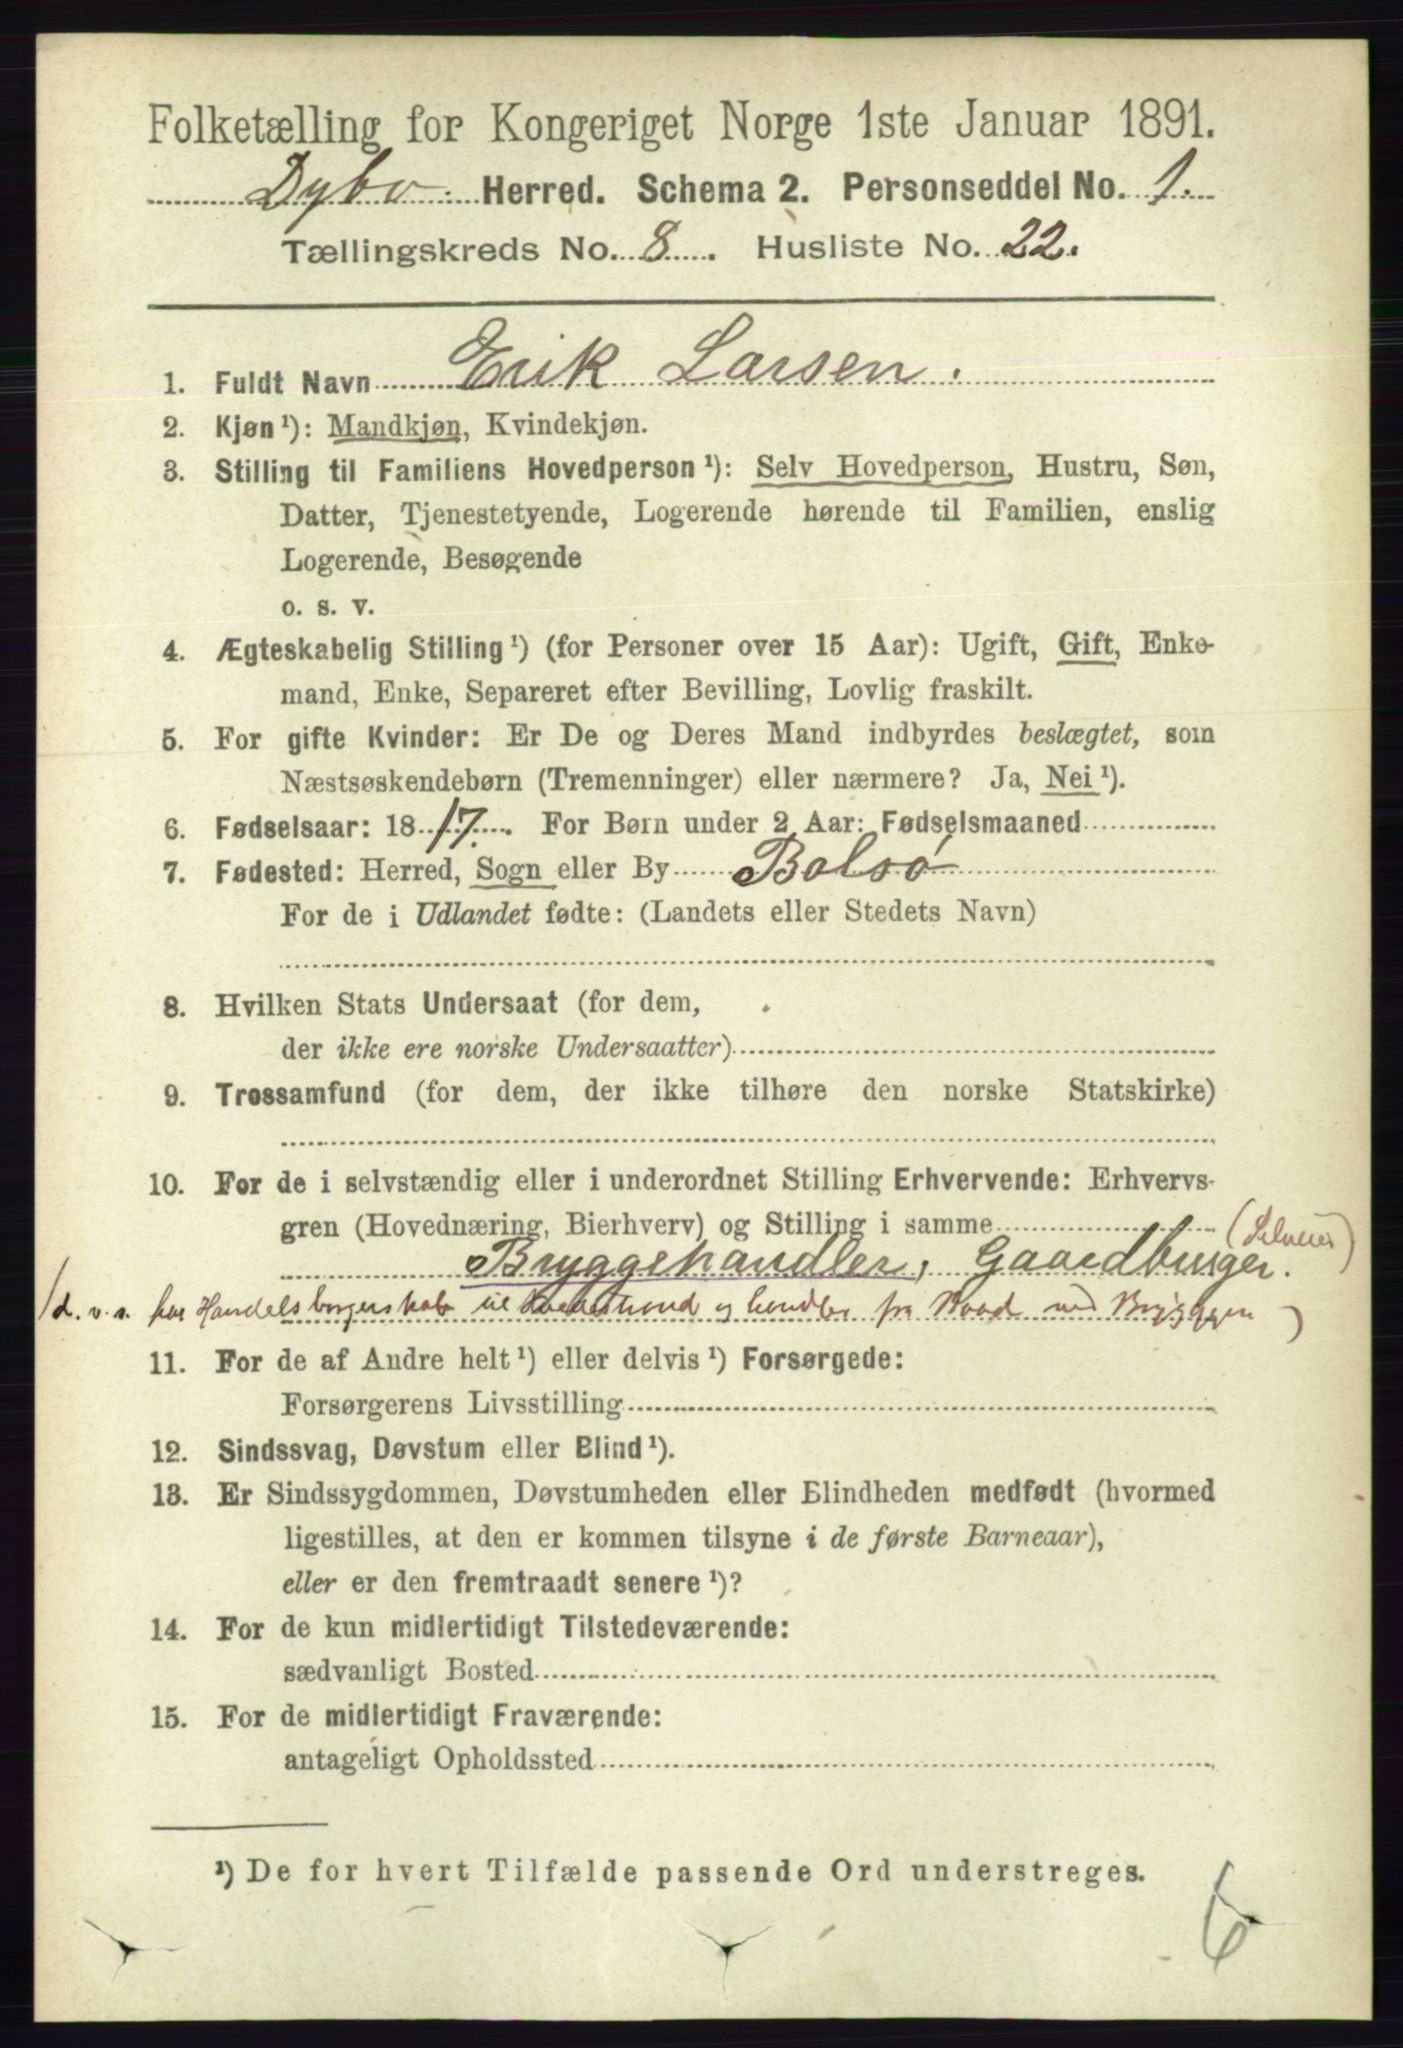 Folketælling for Kongeriget Norge 1ste Januar 1891.
Dybv. Herred. Schema 2. Personseddel No. 1.
Tællingskreds No. 8. Husliste No. 22.
1. Fuldt Navn Erik Larsen.
2. Kjøn ¹): Mandkjøn, Kvindekjøn.
3. Stilling til Familiens Hovedperson ¹): Selv Hovedperson, Hustru, Søn,
Datter, Tjenestetyende, Logerende hørende til Familien, enslig
Logerende, Besøgende
o. s. v.
4. Ægteskabelig Stilling ¹) (for Personer over 15 Aar): Ugift, Gift, Enke-
mand, Enke, Separeret efter Bevilling, Lovlig fraskilt.
5. For gifte Kvinder: Er De og Deres Mand indbyrdes beslægtet, som
Næstsøskendebørn (Tremenninger) eller nærmere? Ja, Nei ¹).
6. Fødselsaar: 1817. For Børn under 2 Aar: Fødselsmaaned
7. Fødested: Herred, Sogn eller By Bolsø
For de i Udlandet fødte: (Landets eller Stedets Navn)
8. Hvilken Stats Undersaat (for dem,
der ikke ere norske Undersaatter)
9. Trossamfund (for dem, der ikke tilhøre den norske Statskirke)
10. For de i selvstændig eller i underordnet Stilling Erhvervende: Erhvervs-
gren (Hovednæring, Bierhverv) og Stilling i samme (Selveier)
Bryggehandler, Gaardbruger.
(d. v. s. har Handelsborgerskab til og handler fra Baad ved Bryggen)
11. For de af Andre helt ¹) eller delvis ¹) Forsørgede:
Forsørgerens Livsstilling
12. Sindssvag, Døvstum eller Blind ¹).
13. Er Sindssygdommen, Døvstumheden eller Blindheden medfødt (hvormed
ligestilles, at den er kommen tilsyne i de første Barneaar),
eller er den fremtraadt senere ¹)?
14. For de kun midlertidigt Tilstedeværende:
sædvanligt Bosted
15. For de midlertidigt Fraværende:
antageligt Opholdssted
¹) De for hvert Tilfælde passende Ord understreges.
6